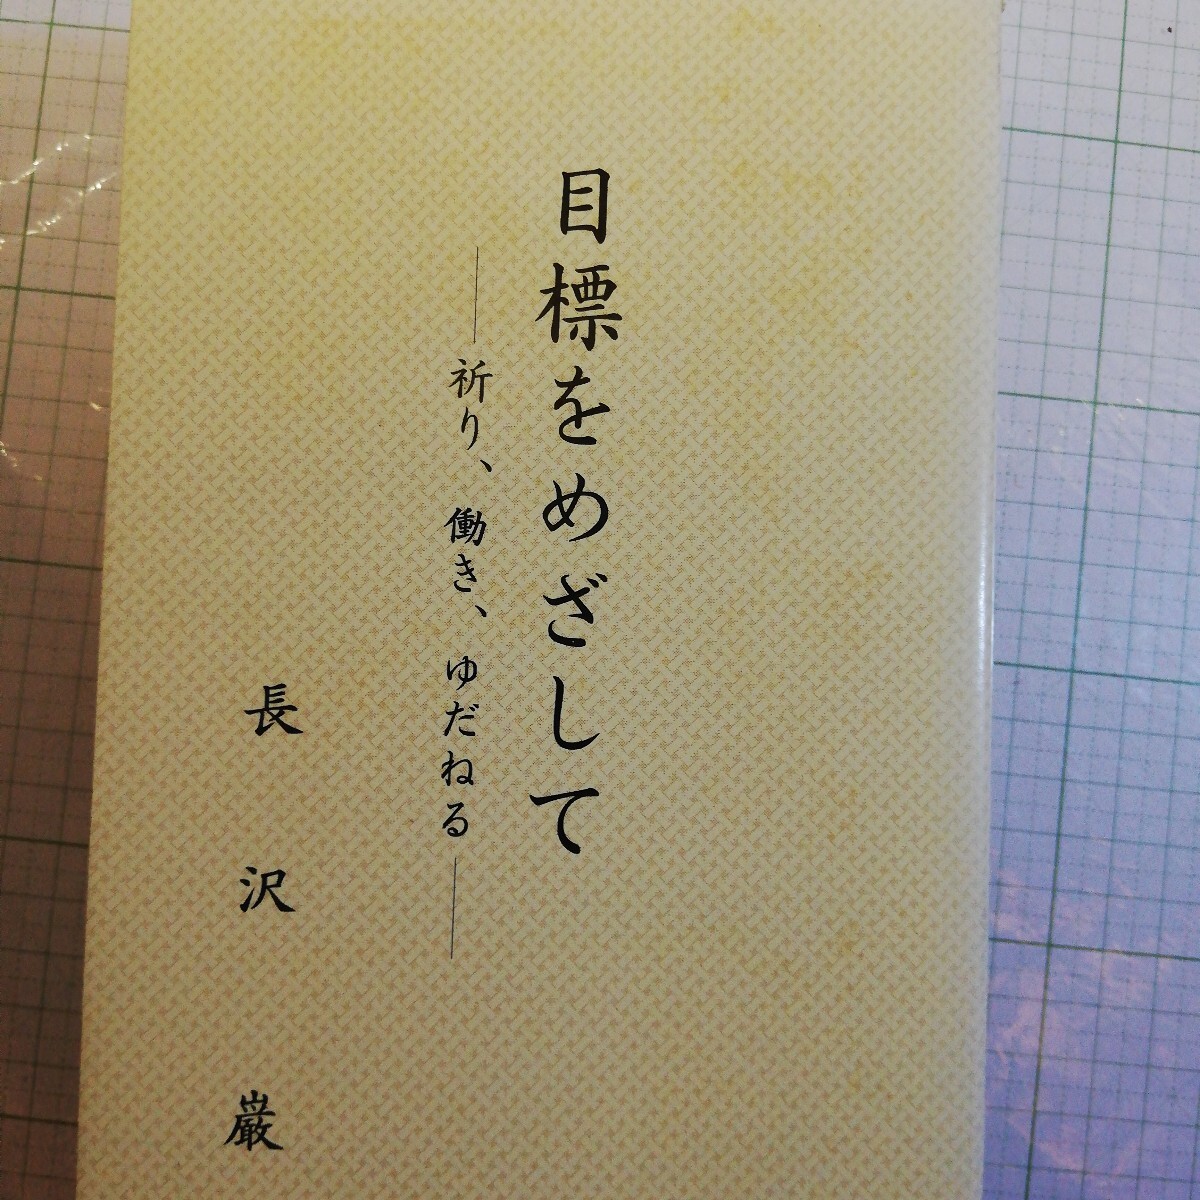 目標をめざして
――祈り、働き、ゆだねる――
長沢巌